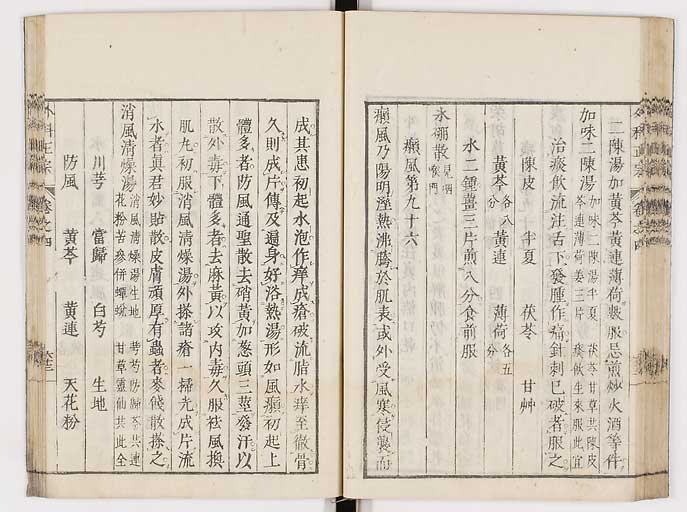 二陳湯加黃芩黃連薄荷數服忌煎炒火酒等件
加味二陳湯
加味二陳湯半夏
芩連薄荷姜三片
茯苓甘草共陳皮
痰飲生來服此宜
治痰飲流注舌下發腫作痛針刺已破者服之
陳皮 半夏 茯苓 甘艸
黃芩各八分 黃連 薄荷各五分
水二鍾薑三片煎八分食前服
氷硼散見咽喉門
癩風第九十六
癩風乃陽明溼熱沸騰於肌表或外受風寒侵襲而
成其患初起水泡作痒成瘡破流脂水痒至徹骨
久則成片傳及遍身好浴熱湯形如風癩初起上
體多者防風通聖散去硝黃加葱頭三莖發汗以
散外毒下體多者去麻黃以攻內毒久服袪風換
肌丸初服消風清燥湯外搽諸瘡一掃光成片流
水者眞君妙貼散皮膚頑厚有蟲者麥餞散搽之
消風清燥湯
消風清燥湯生地
花粉苦參併蟬蛻
芎芍防歸芩共連
甘草靈仙共此全
川芎 當歸 白芍 生地
防風 黃芩 黃連 天花粉
卷之四